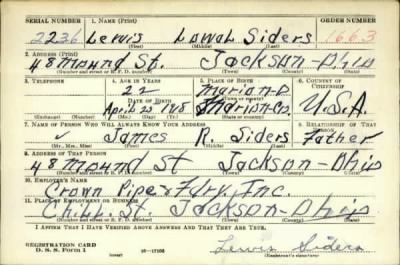 SERIAL NUMBER 1. NAME (Print) ORDER NUMBER
2236 Lewis Lowal Siders 1663
(First) (Middle) (Last)
2. ADDRESS (Print)
48 Mound St. Jackson-Ohio
(Number and street or R. F. D. number) (Town) (County) (State)
3. TELEPHONE 4. AGE IN YEARS 5. PLACE OF BIRTH 6. COUNTRY OF CITIZENSHIP
22 Marion-O
DATE OF BIRTH (Town or county)
April 20 Marion-Co. U.S.A.
(Exchange) (Number) (Mo.) (Day) (Yr.) (State or country)
7. NAME OF PERSON WHO WILL ALWAYS KNOW YOUR ADDRESS 8. RELATIONSHIP OF THAT PERSON
James R. Siders Father
(Mr., Mrs., Miss) (First) (Middle) (Last)
9. ADDRESS OF THAT PERSON
48 Mound St Jackson-Ohio
(Number and street or R. F. D. number) (Town) (County) (State)
10. EMPLOYER'S NAME
Crown Pipe & Fdry. Inc.
11. PLACE OF EMPLOYMENT OR BUSINESS
Chill. St. Jackson-Ohio
(Number and street or R. F. D. number) (Town) (County) (State)
I AFFIRM THAT I HAVE VERIFIED ABOVE ANSWERS AND THAT THEY ARE TRUE.
REGISTRATION CARD
D. S. S. Form 1 Lewis Siders
(over) (Registrant's signature)